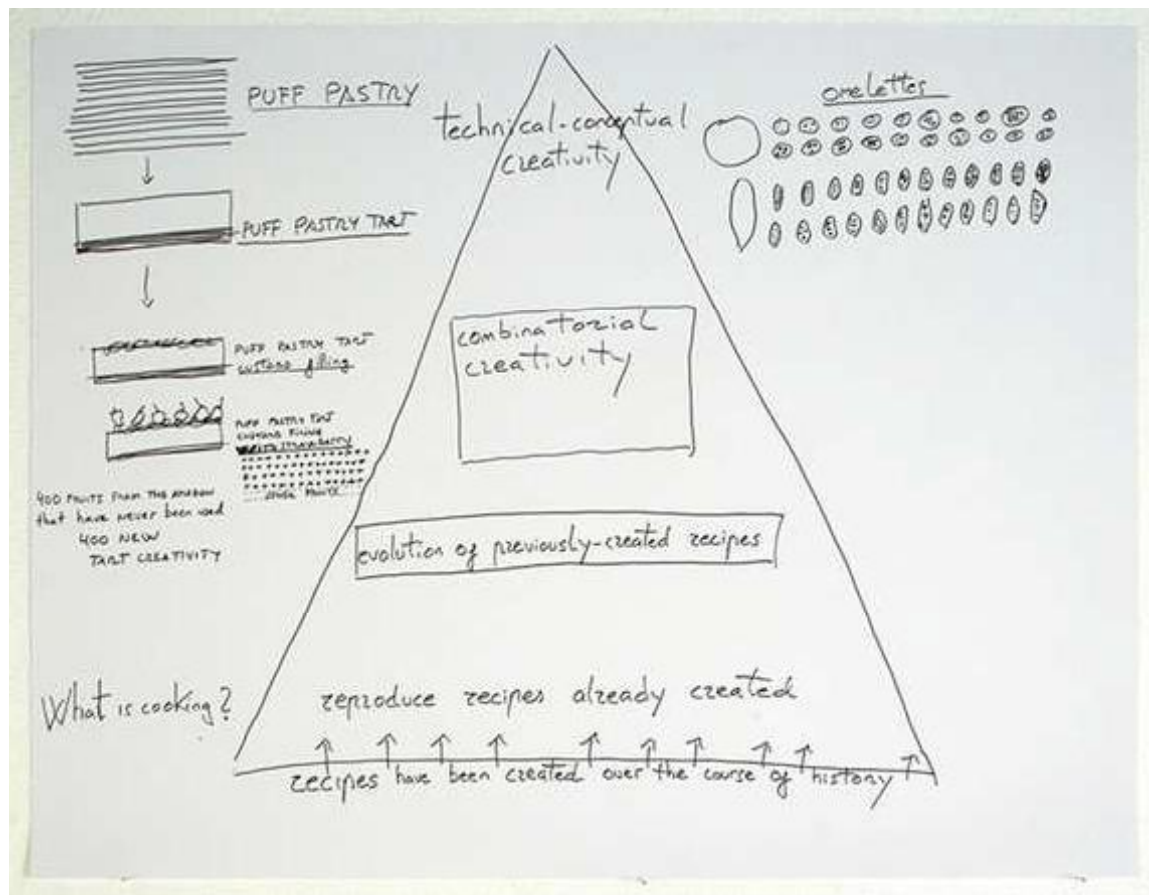 PUFF PASTRY
PUFF PASTRY TART
PUFF PASTRY TART
custard filling
PUFF PASTRY TART
CUSTARD FILLING
STRAWBERRY
OTHER FRUITS
400 FRUITS FROM THE AMAZON
that have never been used
400 NEW
TART CREATIVITY
What is cooking?
technical-conceptual
creativity
combinatorial
creativity
evolution of previously-created recipes
reproduce recipes already created
recipes have been created over the course of history
omelettes